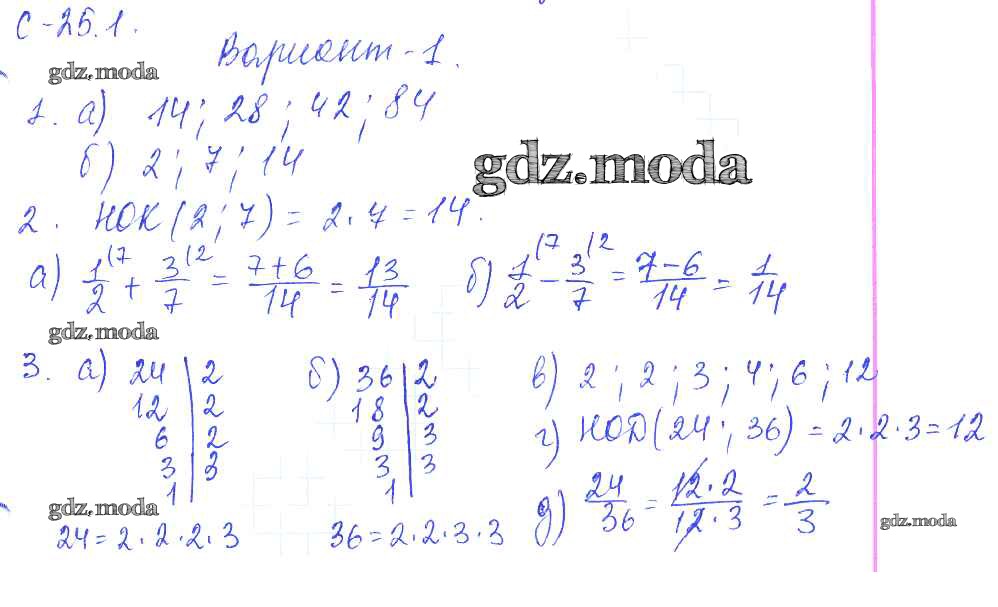 С-25.1.
Вариант-1.
gdz.moda
1. а) 14; 28; 42; 84
б) 2; 7; 14
gdz.moda
2. НОК(2; 7) = 2·7 = 14.
а) 1/2 (7 + 3/7 (2 = 7+6/14 = 13/14
б) 1/2 (7 - 3/7 (2 = 7-6/14 = 1/14
gdz.moda
3. а) 24 | 2
12 | 2
6 | 2
3 | 3
1
24 = 2·2·2·3
б) 36 | 2
18 | 2
9 | 3
3 | 3
1
36 = 2·2·3·3
в) 2; 2; 3; 4; 6; 12
г) НОД(24; 36) = 2·2·3 = 12
д) 24/36 = 12·2/12·3 = 2/3
gdz.moda
gdz.moda